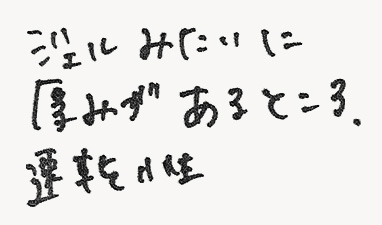 ジェル みたいに
厚みが あるところ.
運転心性